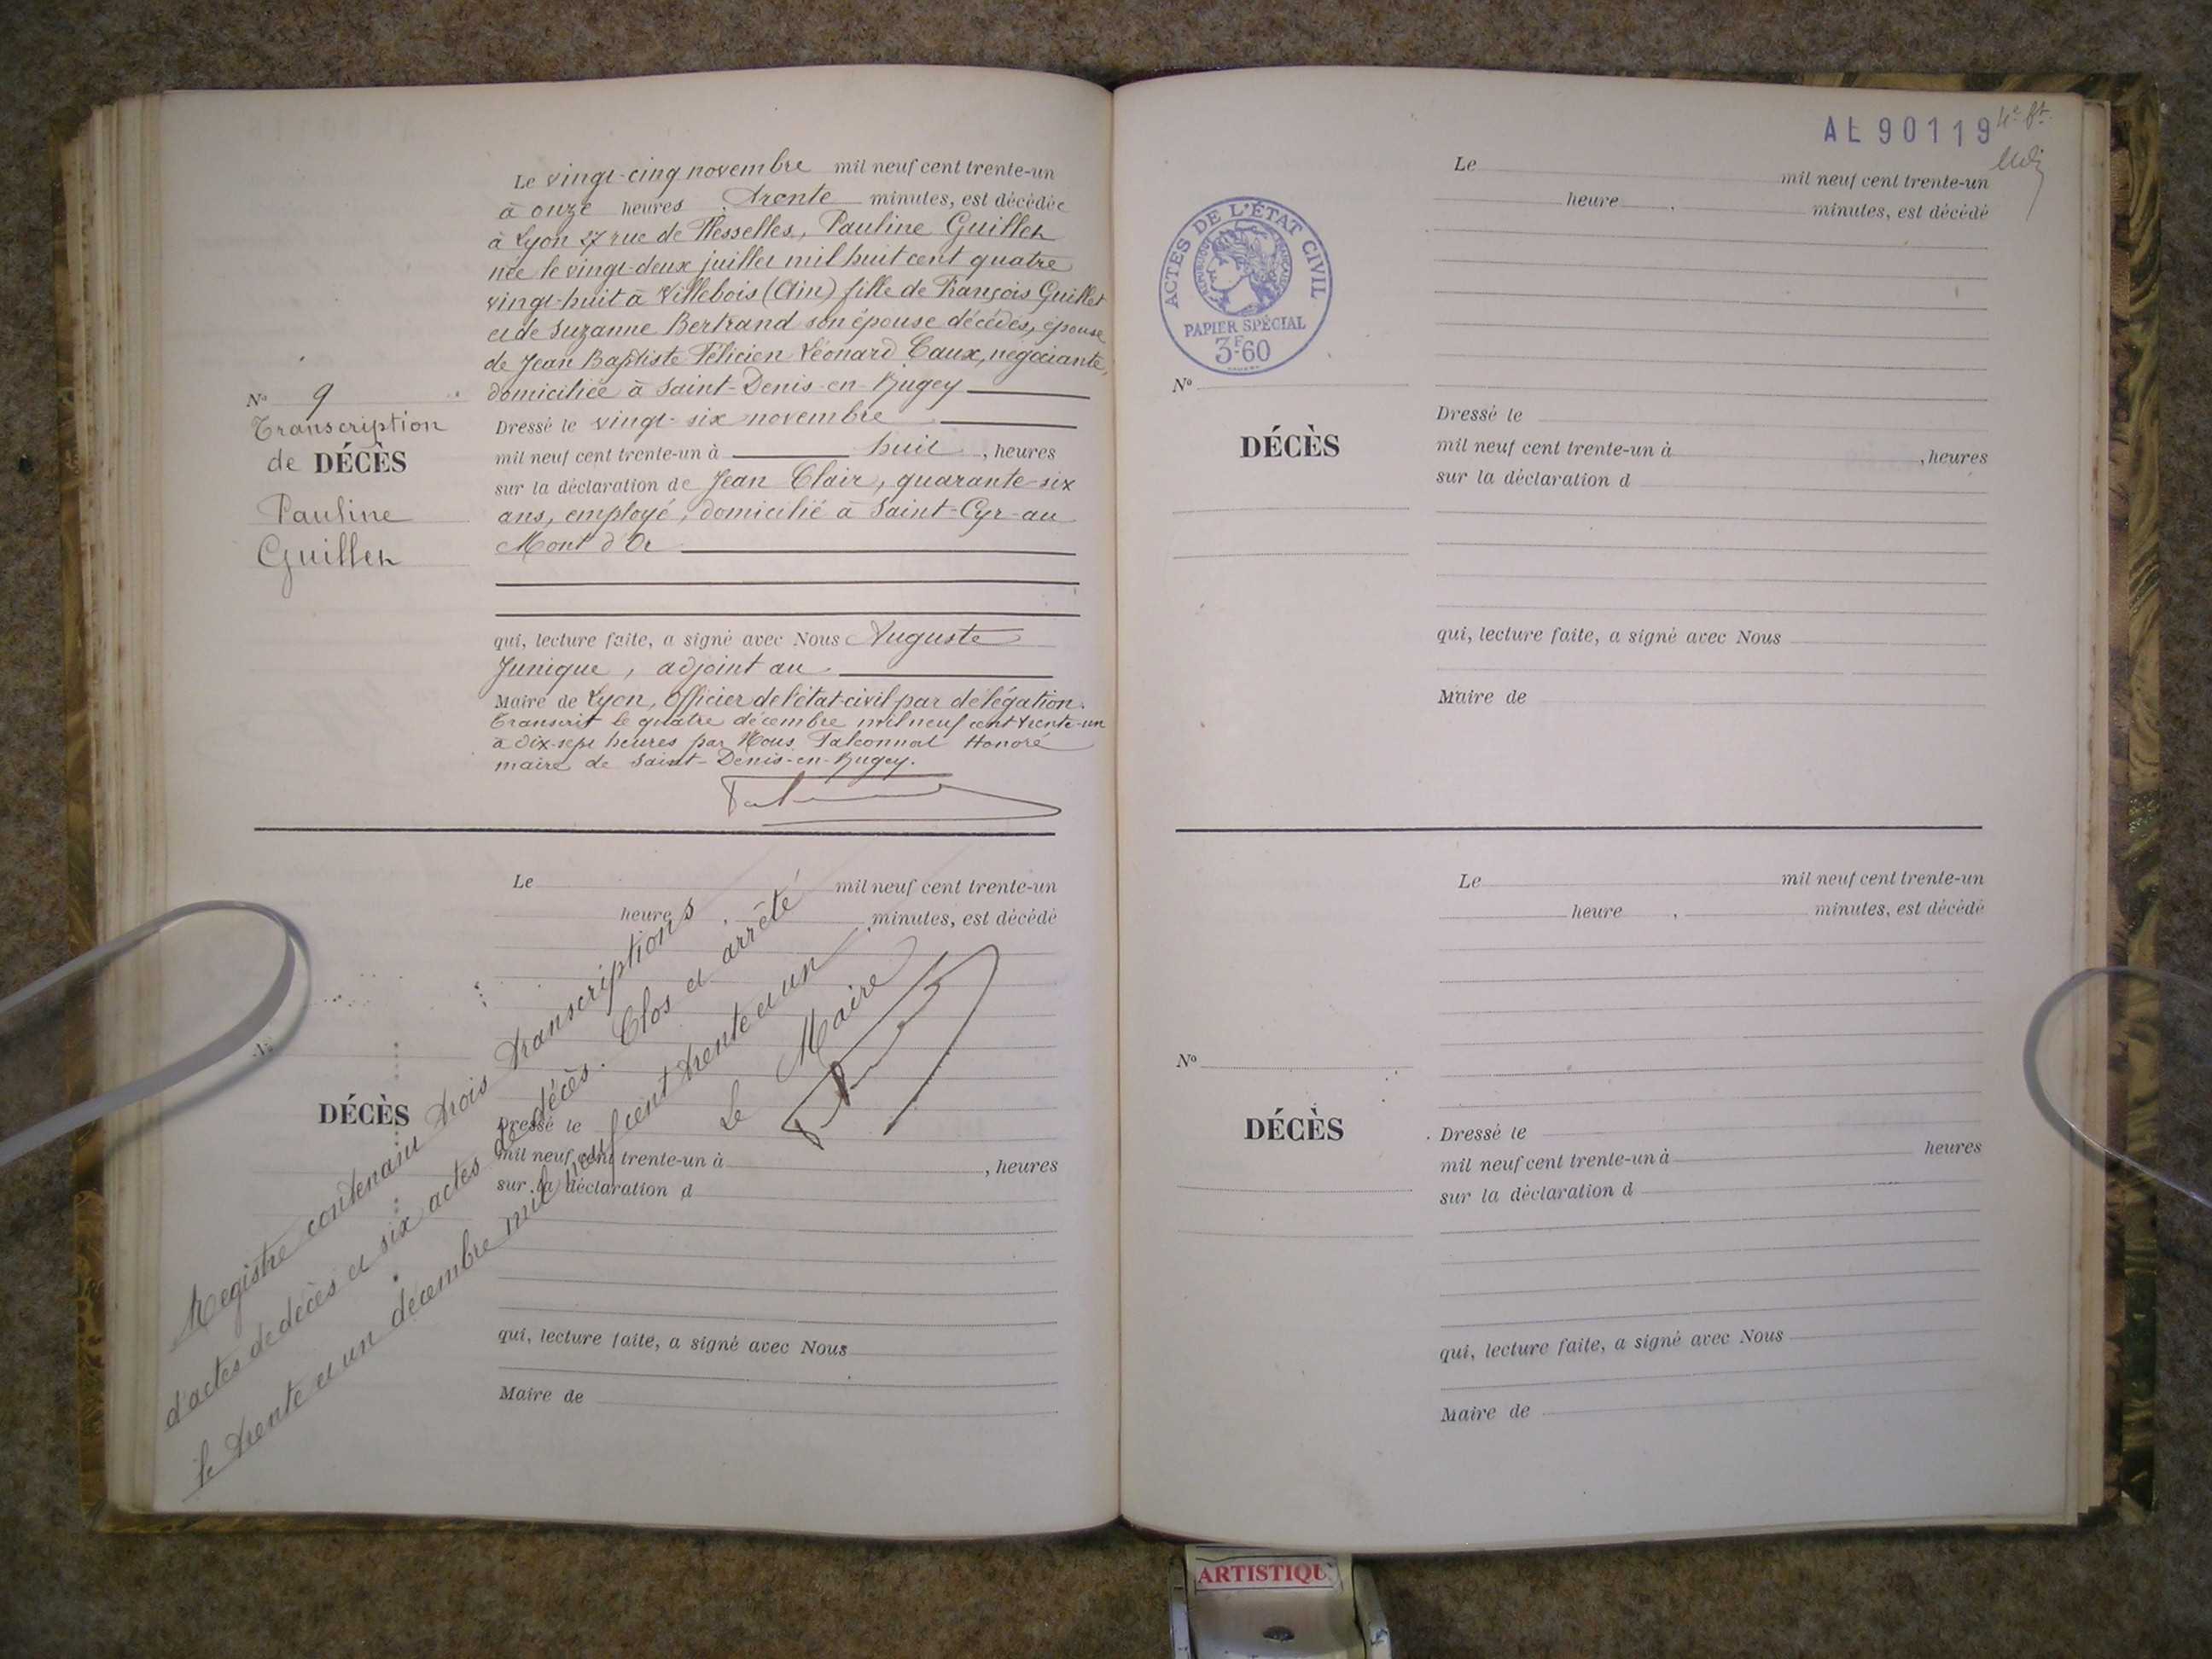 Le vingt-cinq novembre mil neuf cent trente-un
à onze heures trente minutes, est décédée
à Lyon 27 rue de Flesselles, Pauline Guillet
née le vingt-deux juillet mil huit cent quatre
vingt-huit à Villebois (Ain) fille de François Guillet
et de Suzanne Bertrand son épouse décédés, épouse
de Jean Baptiste Félicien Léonard Caux, négociante,
domiciliée à Saint-Denis-en-Bugey
Dressé le vingt-six novembre
mil neuf cent trente-un à huit, heures
sur la déclaration de Jean Clair, quarante-six
ans, employé, domicilié à Saint-Cyr-au
Mont d'Or
qui, lecture faite, a signé avec Nous Auguste
Junique, adjoint au
Maire de Lyon, Officier de l'état-civil par délégation.
Transcrit le quatre décembre mil neuf cent trente-un
à dix-sept heures par Nous Falconnat Honoré
maire de Saint-Denis-en-Bugey.
N° 9
Transcription
de DÉCÈS
Pauline
Guillet
Le mil neuf cent trente-un
heures minutes, est décédé
DÉCÈS
Dressé le
mil neuf cent trente-un à , heures
sur la déclaration d
qui, lecture faite, a signé avec Nous
Maire de
Registre contenant trois transcriptions
d'actes de décès et six actes de décès. Clos et arrêté
le trente et un décembre mil neuf cent trente et un
Le Maire
AL 90119
ACTES DE L'ÉTAT CIVIL
RÉPUBLIQUE FRANÇAISE
PAPIER SPÉCIAL
3F60
Le mil neuf cent trente-un
heure minutes, est décédé
N°
DÉCÈS
Dressé le
mil neuf cent trente-un à , heures
sur la déclaration d
qui, lecture faite, a signé avec Nous
Maire de
Le mil neuf cent trente-un
heure , minutes, est décédé
N°
DÉCÈS
Dressé le
mil neuf cent trente-un à heures
sur la déclaration d
qui, lecture faite, a signé avec Nous
Maire de
ARTISTIQU